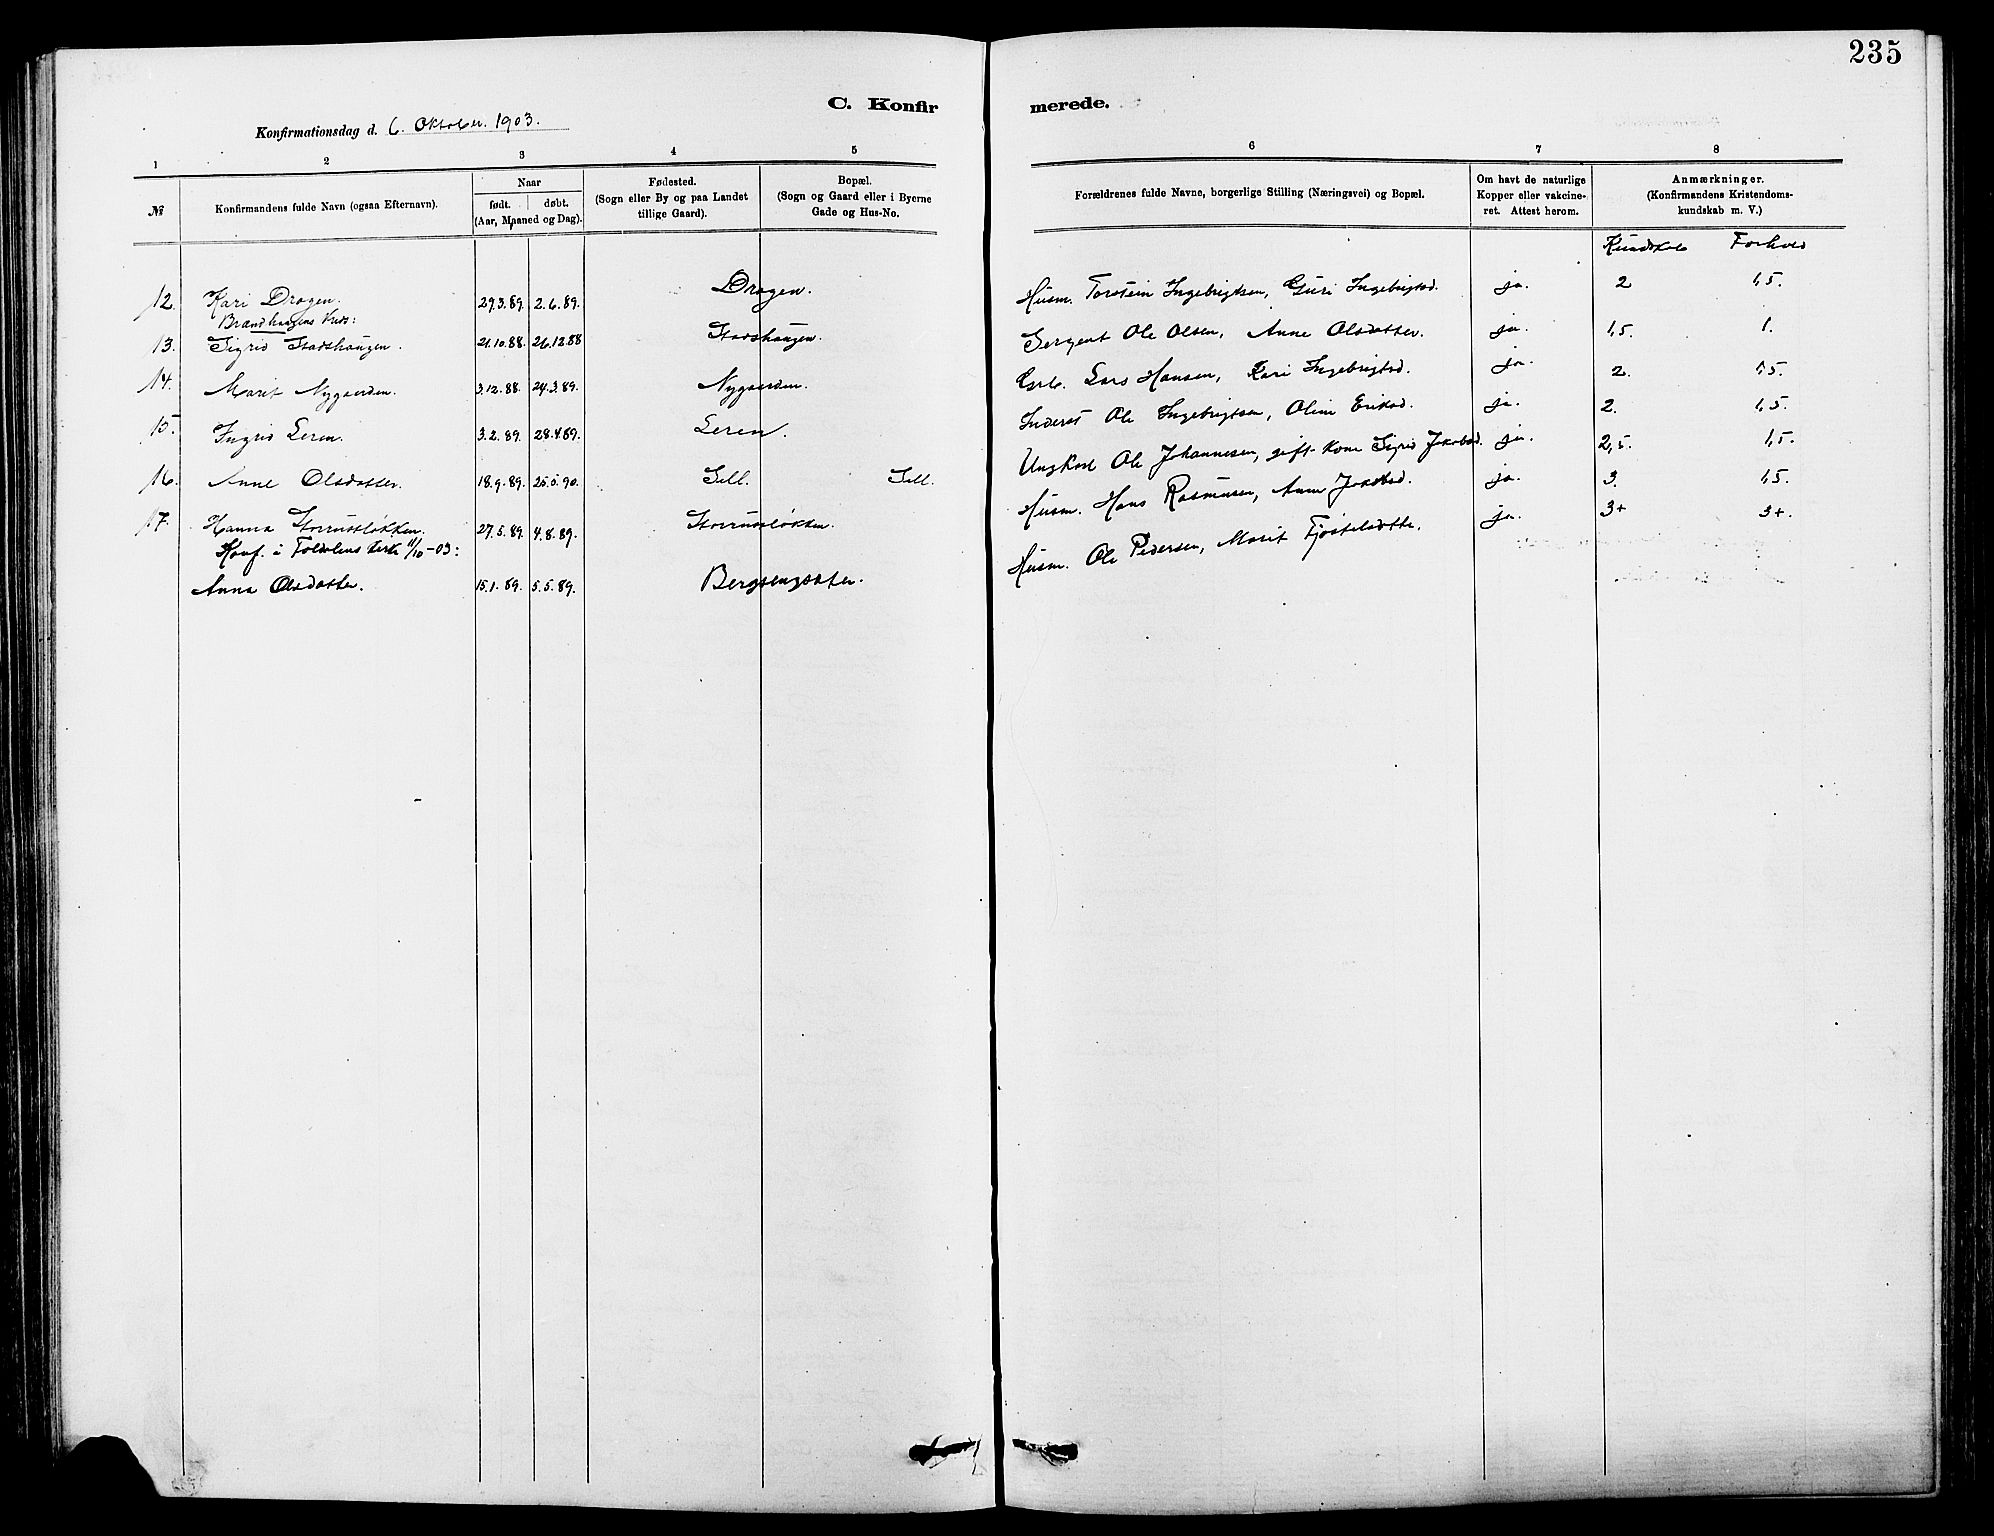 235
C. Konfir merede.
Konfirmationsdag d. 6. Oktober. 1903.
1 2 3 4 5 6 7 8
№ Konfirmandens fulde Navn (ogsaa Efternavn). Naar født. døbt. (Aar, Maaned og Dag). Fødested. (Sogn eller By og paa Landet tillige Gaard). Bopæl. (Sogn og Gaard eller i Byerne Gade og Hus-No. Forældrenes fulde Navne, borgerlige Stilling (Næringsvei) og Bopæl. Om havt de naturlige Kopper eller vakcineret. Attest herom. Anmærkninger. (Konfirmandens Kristendomskundskab m. V.)
Kundskab Forhold
12. Kari Drogen. 29.3.89. 2.6.89. Drogen. Husm. Torstein Ingebrigtsen, Guri Ingebrigtsd. ja. 2 1,5.
Brændhaugens Kreds:
13. Sigrid Stadshaugen. 21.10.88. 26.12.88 Stadshaugen. Sergent Ole Olsen, Anne Olsdatter. ja. 1,5. 1.
14. Marit Nygaarden. 3.12.88. 24.3.89. Nygaarden. Grb. Lars Hansen, Kari Ingebrigtsd. ja. 2. 1,5.
15. Ingrid Leren. 3.2.89. 28.4.89. Leren. Inderst Ole Ingebrigtsen, Oline Eriksd. ja. 2. 1,5.
16. Anne Olsdatter. 18.9.89. 25.5.90. Sell. Sell. Ungkarl Ole Johannesen, gift Kone Sigrid Jakobsd. ja. 2,5. 1,5.
17. Hanna Storrusløkken. 27.5.89. 4.8.89. Storrusløkken. Husm. Hans Rasmusen, Anne Jakobsd. ja. 3. 1,5.
Konf. i Foldalens Kirke 11/10-03:
Anna Olsdatter. 15.1.89. 5.5.89. Bergsengsæter. Husm. Ole Pedersen, Marit Fjøstelsdatter. ja. 3+ 3+.